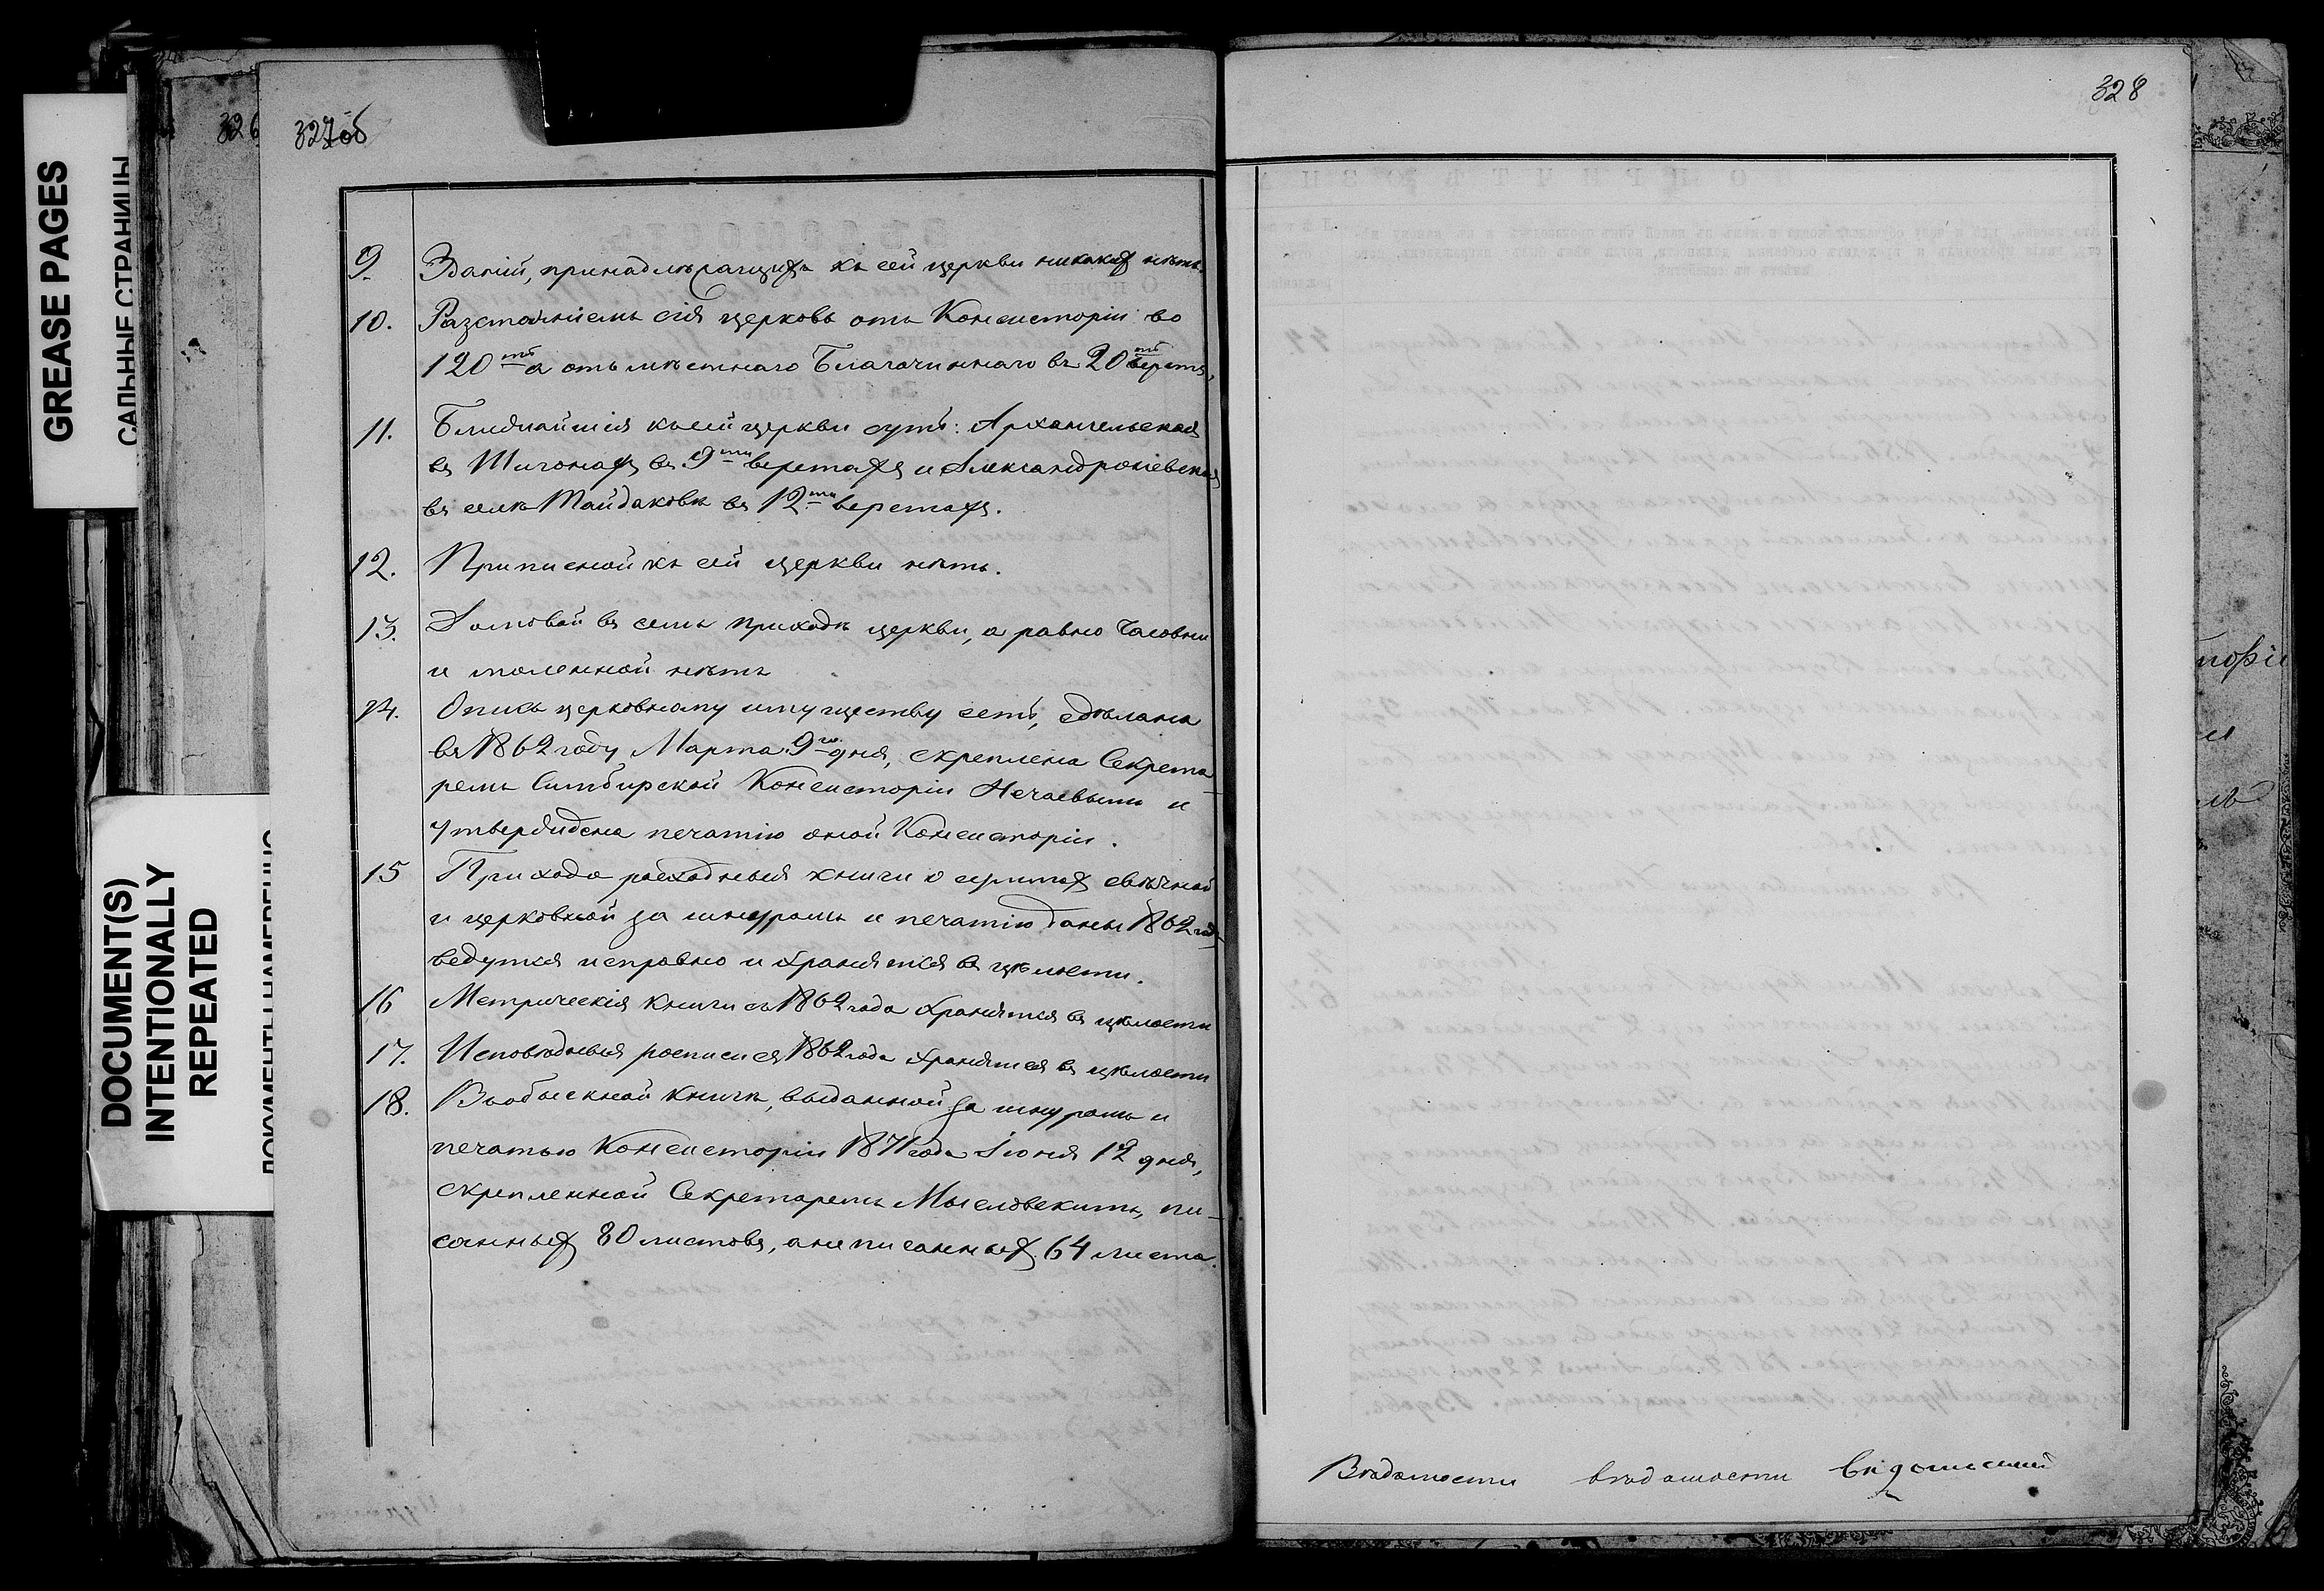 GREASE PAGES
САЛЬНЫЕ СТРАНИЦЫ
DOCUMENT(S)
INTENTIONALLY
REPEATED
ДОКУМЕНТЫ НАМЕРЕННО
326
327об
9. Зданій, принадлѣжащихъ къ сей церкви никакихъ нѣтъ.
10. Разстояніемъ сія церковь отъ Консисторіи во
120ти а отъ мѣстнаго Благочиннаго въ 20ти верстѣ,
11. Ближайшія къ сей церкви суть: Архангельская
въ Шигонахъ въ 9ти верстахъ и Александроневская
въ селѣ Тайдаковѣ въ 12ти верстахъ.
12. Приписной къ сей церкви нѣтъ.
13. Домовой въ семъ приходѣ церкви, а равно часовни
и моленной нѣтъ
14. Опись церковному имуществу есть, сдѣлана
въ 1862 году Марта 9го дня, скреплена Секрета-
ремъ Симбирской Консисторіи Нечаевымъ и
утверждена печатію оной Консисторіи.
15 Приходо расходныя книги о суммахъ свѣчной
и церковной за шнуромъ и печатію даны 1862 года
ведутся исправно и хранятся въ цѣлости.
16 Метрическія книги съ 1862 года хранятся въ цѣлости
17. Исповѣдныя росписи съ 1862 года хранятся въ цѣлости
18. Въ обыскной книгѣ, выданной за шнуромъ и
печатью Консисторіи 1871 года Іюня 12 дня,
скрепленной Секретаремъ Мысловскимъ, пи-
санныхъ 80 листовъ, а не писанныхъ 64 листа.
328
Вѣдомости вѣдомости